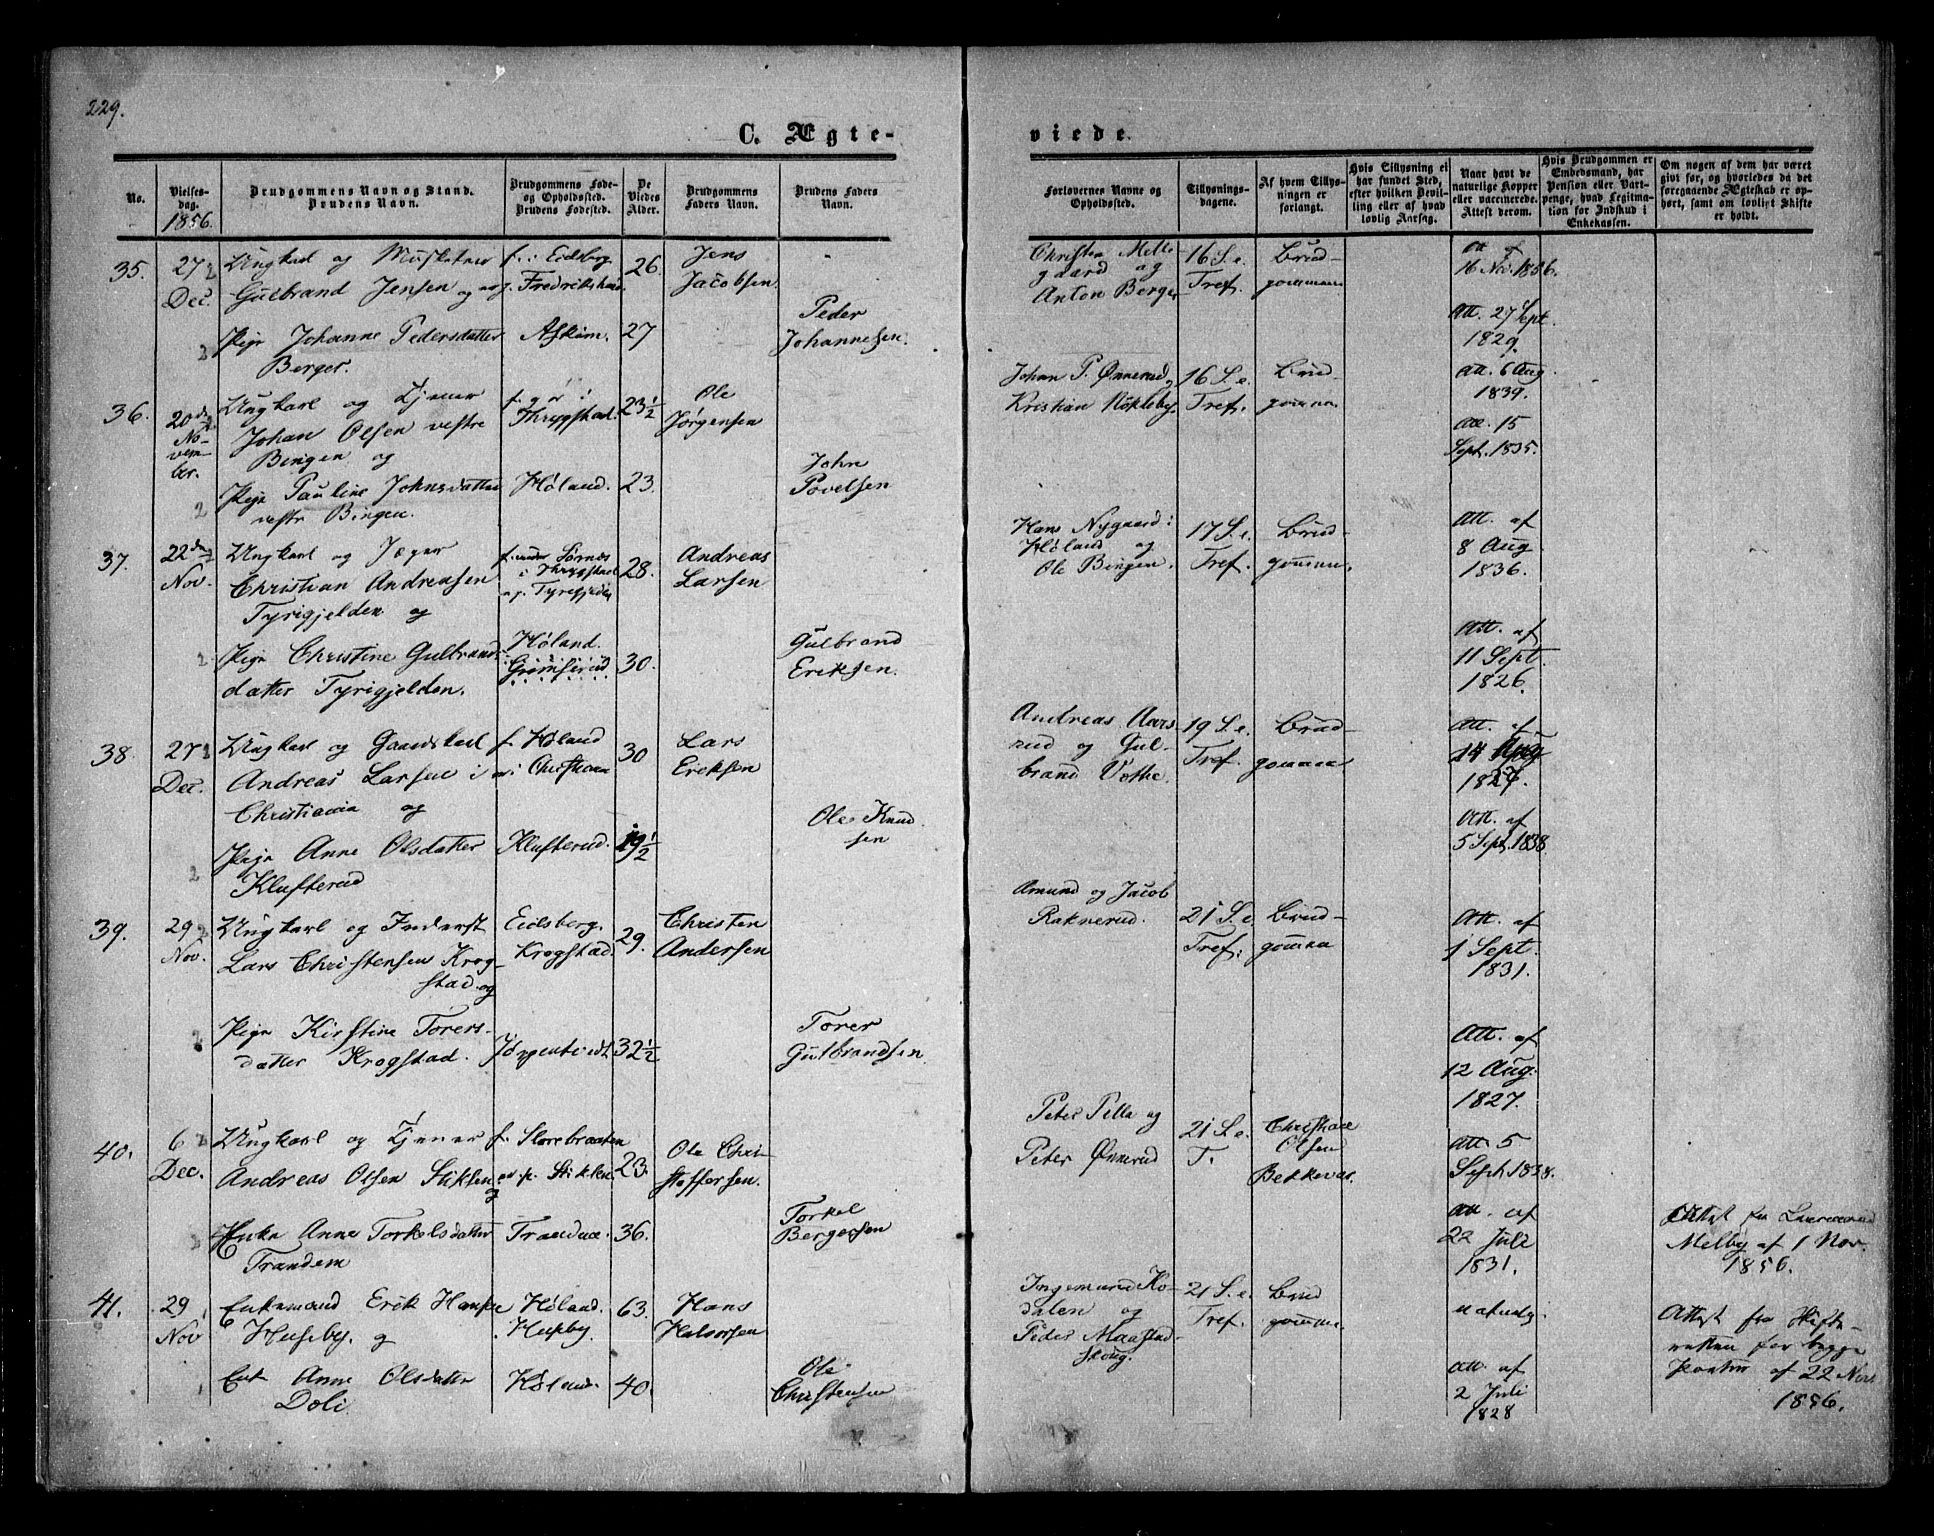 229.
C. Ægte-
viede.
No.
Vielses-
dag.
1856.
Brudgommens Navn og Stand.
Brudens Navn.
Brudgommens Føde-
og Opholdssted.
Brudens Fødested.
De
Viedes
Alder.
Brudgommens
Faders Navn.
Brudens Faders
Navn.
Forlovernes Navne og
Opholdssted.
Tillysnings-
dagene.
Af hvem Tillys-
ningen er
forlangt.
Hvis Tillysning ei
har fundet Sted,
efter hvilken Bevil-
ling eller af hvad
lovlig Aarsag.
Naar havt de
naturlige Kopper
eller vaccinerede.
Attest derom.
Hvis Brudgommen er
Embedsmand, har
Pension eller Vart-
penge, hvad Legitima-
tion for Indskud i
Enkekassen.
Om nogen af dem har været
givt før, og hvorledes da det
foregaaende Ægteskab er op-
hørt, samt om lovligt Skifte
er holdt.
35.
27
Dec.
Ungkarl og Musketeer
Gulbrand Jensen og
Pige Johanne Pedersdatter
Berger.
f. i Eidsberg
Fredrikshald
Askim.
26.
27
Jens
Jacobsen
Peder
Johannesen.
Christen Melle-
gaard og
Anton Berger
16 S. e.
Tref.
Brud-
gommen
16 Nov. 1836.
Att. 27 Sept.
1829.
36.
20de
No-
vem-
ber.
Ungkarl og Tjener
Johan Olsen vestre
Bingen og
Pige Pauline Johnsdatter
vestr Bingen.
f. og i
Thrygstad.
Høland.
23½
23.
Ole
Jørgensen
John
Povelsen
Johan P. Ønnerud,
Kristian Nökleby.
16 S. e.
Tref.
Brud-
gomme.
Att. 6 Aug.
1839.
Att. 15
Sept. 1835.
37.
22de
Nov.
Ungkarl og Jæger
Christian Andreasen
Tyrigjelden og
Pige Christine Gulbrands-
datter Tyrigjelden.
f. under Sörnæs
i Thrygstad
Høland.
Grimsrud
28.
30.
Andreas
Larsen
Gulbrand
Eriksen.
Hans Nygaard i
Høland og
Ole Bingen.
17 S. e.
Tref.
Brud-
gomme.
Att. af
8 Aug
1836.
Att. af
11 Sept.
1826.
38.
27
Dec.
Ungkarl og Gaardskarl
Andreas Larsen i
Christiania og
Pige Anne Olsdatter
Klufterud
f. Høland
Klufterud.
30
19½
Lars
Eriksen
Ole Knud-
sen
Andreas Aars-
rud og Gul-
brand Vothe.
19 S. e.
Tref.
Brud-
gomme
Att. af
14 Aug
1827.
Att. af
5 Sept. 1838.
39.
29
Nov.
Ungkarl og Inderst
Lars Christensen Krog-
stad og
Pige Kirstine Torers-
datter Krogstad.
Eidsberg.
Krogstad.
29.
32½
Christen
Andersen
Torer
Gulbrandsen
Amund og Jacob
Raknerud.
21 S. e.
Tref.
Brud-
gomme
Att. af
1 Sept.
1831.
Att. af
12 Aug.
1827.
40.
6
Dec.
Ungkarl og Tjener
Andreas Olsen Stiklen
og
Enke Anne Torkelsdatter
Trandem
f. Slorebraaten
Stiklen.
23.
36.
Ole Chri-
stoffersen.
Torkel
Bergersen
Peter Pella og
Peter Ønnerud
21 S. e.
T.
Christiane
Olsen
Bekkevar.
Att. 5
Sept. 1838.
Att. af
22 Juli
1831.
Attest fra
Melby af 1 Nov.
1856.
41.
29
Nov
Enkemand Erik Hansen
Huseby. og
Enk. Anne Olsdatter
Doli.
Høland.
Huseby.
Høland.
63.
40.
Hans
Halvorsen
Ole
Christensen
Ingemund Ko-
dalen og
Peder Maastad-
skoug.
21 S. e.
Tref.
Brud
gomme.
Att. af
2 Juli
1828
Attest fra Skifte-
retten for begge
Parter af 22 Nov.
1856.